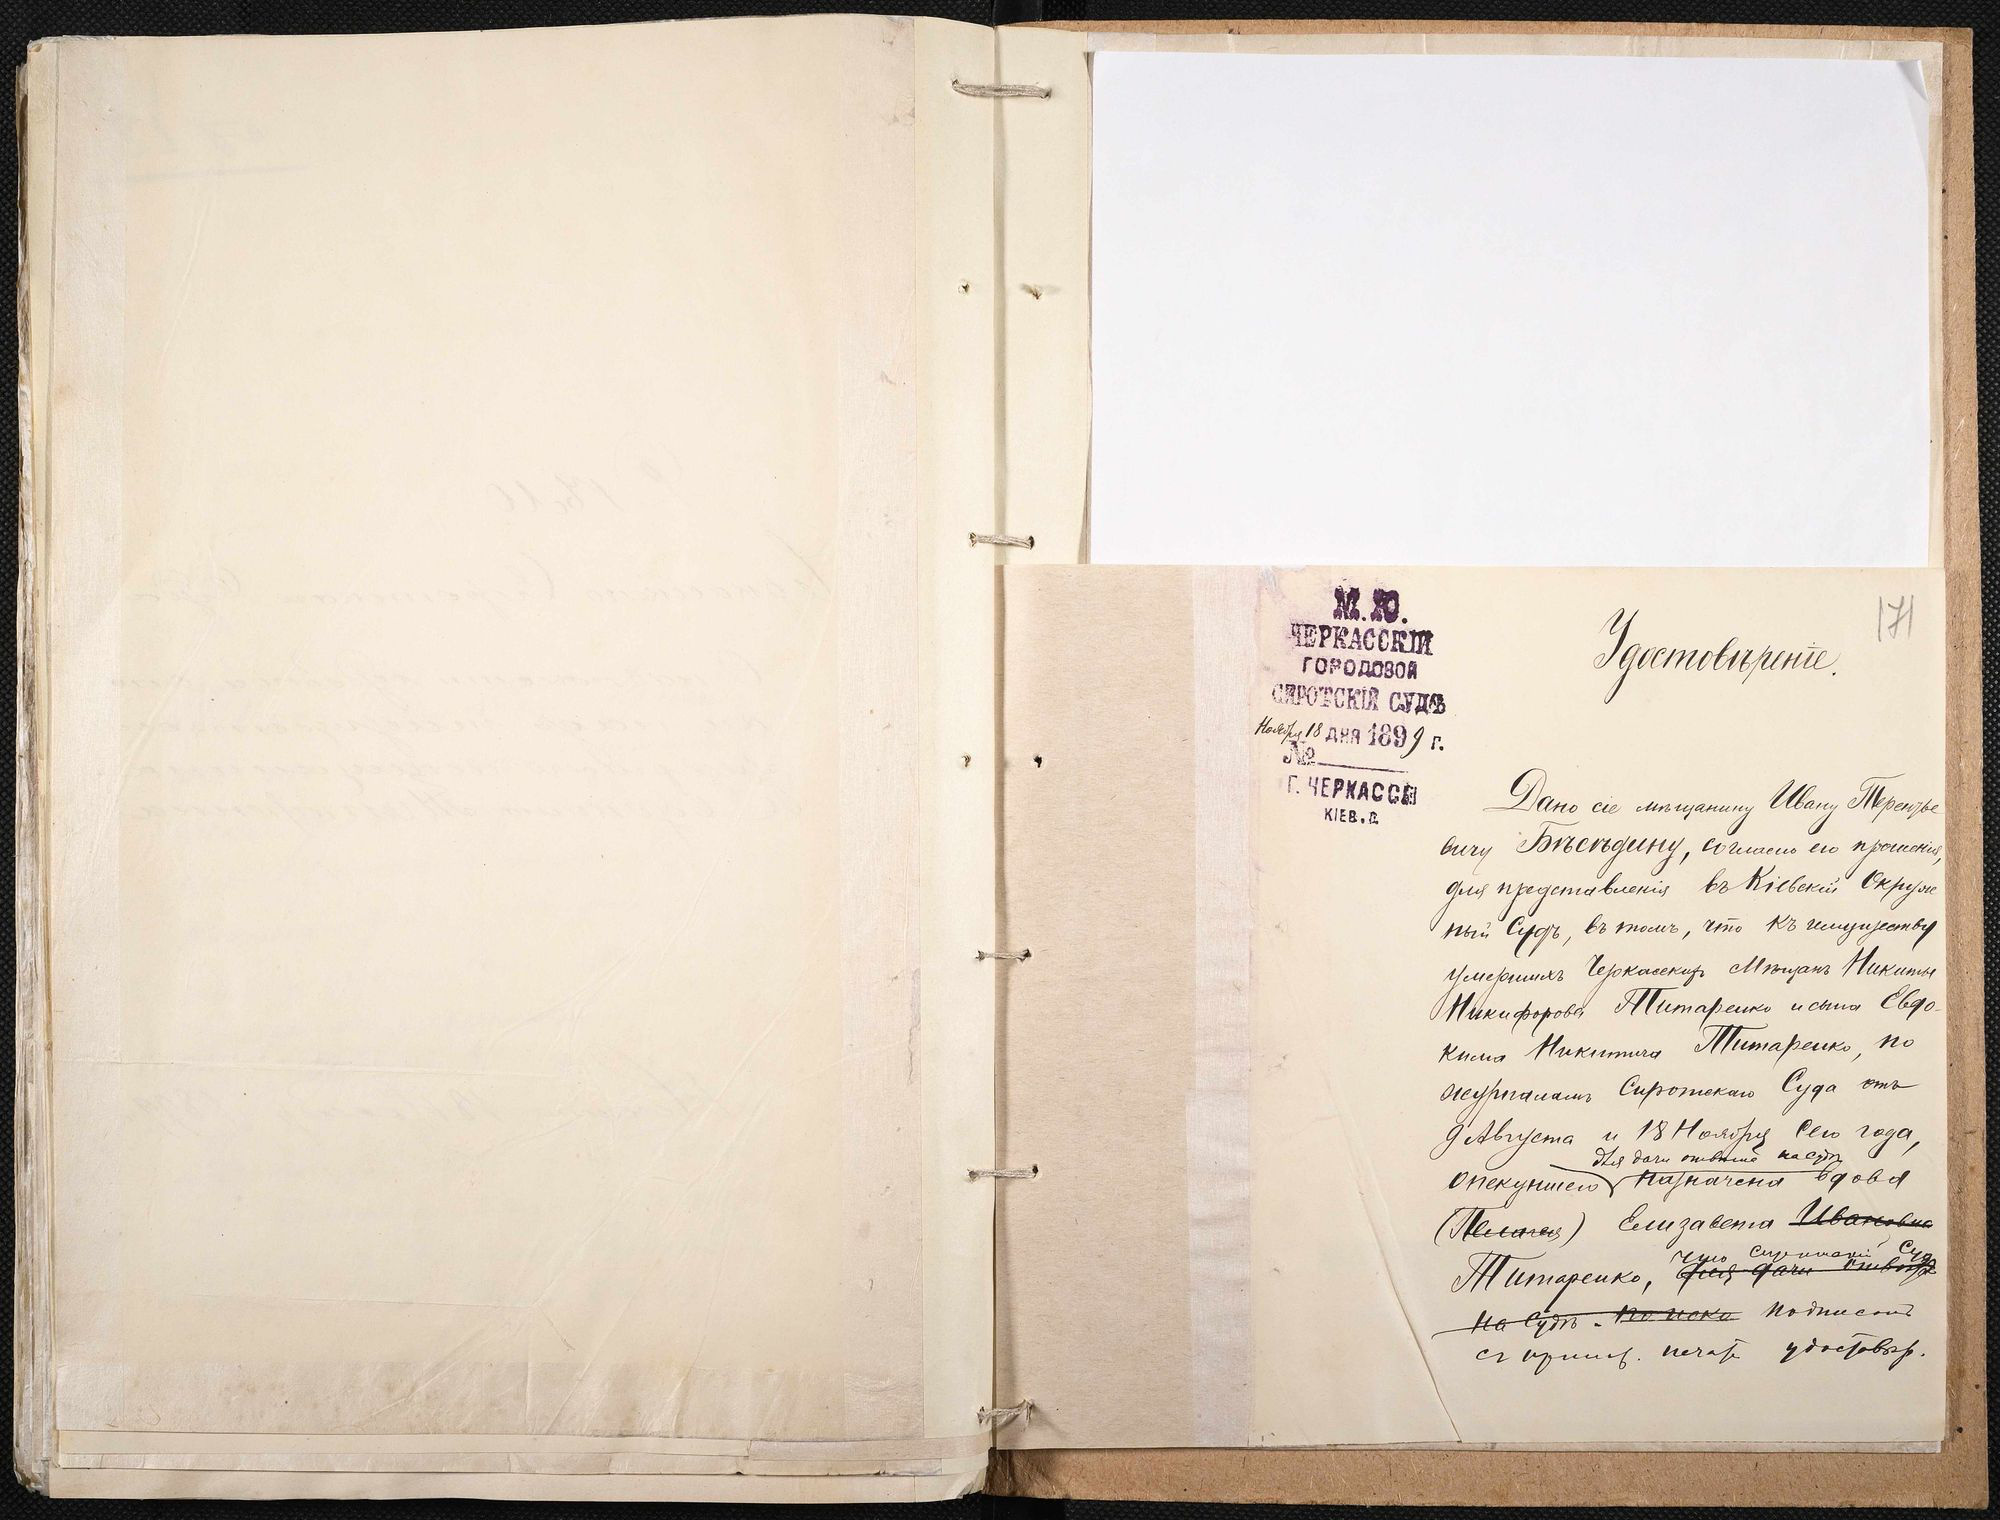 171
М. Ю.
ЧЕРКАССКІЙ
ГОРОДОВОЙ
СИРОТСКІЙ СУДЪ
Ноября 18 ДНЯ 1899 Г.
№
Г. ЧЕРКАССЫ
КІЕВ. Г.
Удостовѣреніе.
Дано сіе мѣщанину Ивану Терентье
вичу Бѣсѣдину, согласно его прошенія,
для представленія въ Кіевскій Окруж
ный Судъ, въ томъ, что къ имуществу
умершихъ Черкасскихъ Мѣщанъ Никиты
Никифорова Титаренко и сына Евдо-
кима Никитича Титаренко, по
журналамъ Сиротскаго Суда отъ
9 Августа и 18 Ноября сего года,
для дачи отвѣта на судѣ
опекуншею назначена вдова
(Пелагея) Елизавета Ивановна
что Сиротскій Судъ
Титаренко, для дачи отвѣта
на Судѣ по иску подписомъ
съ прилож. печати удостовѣр.